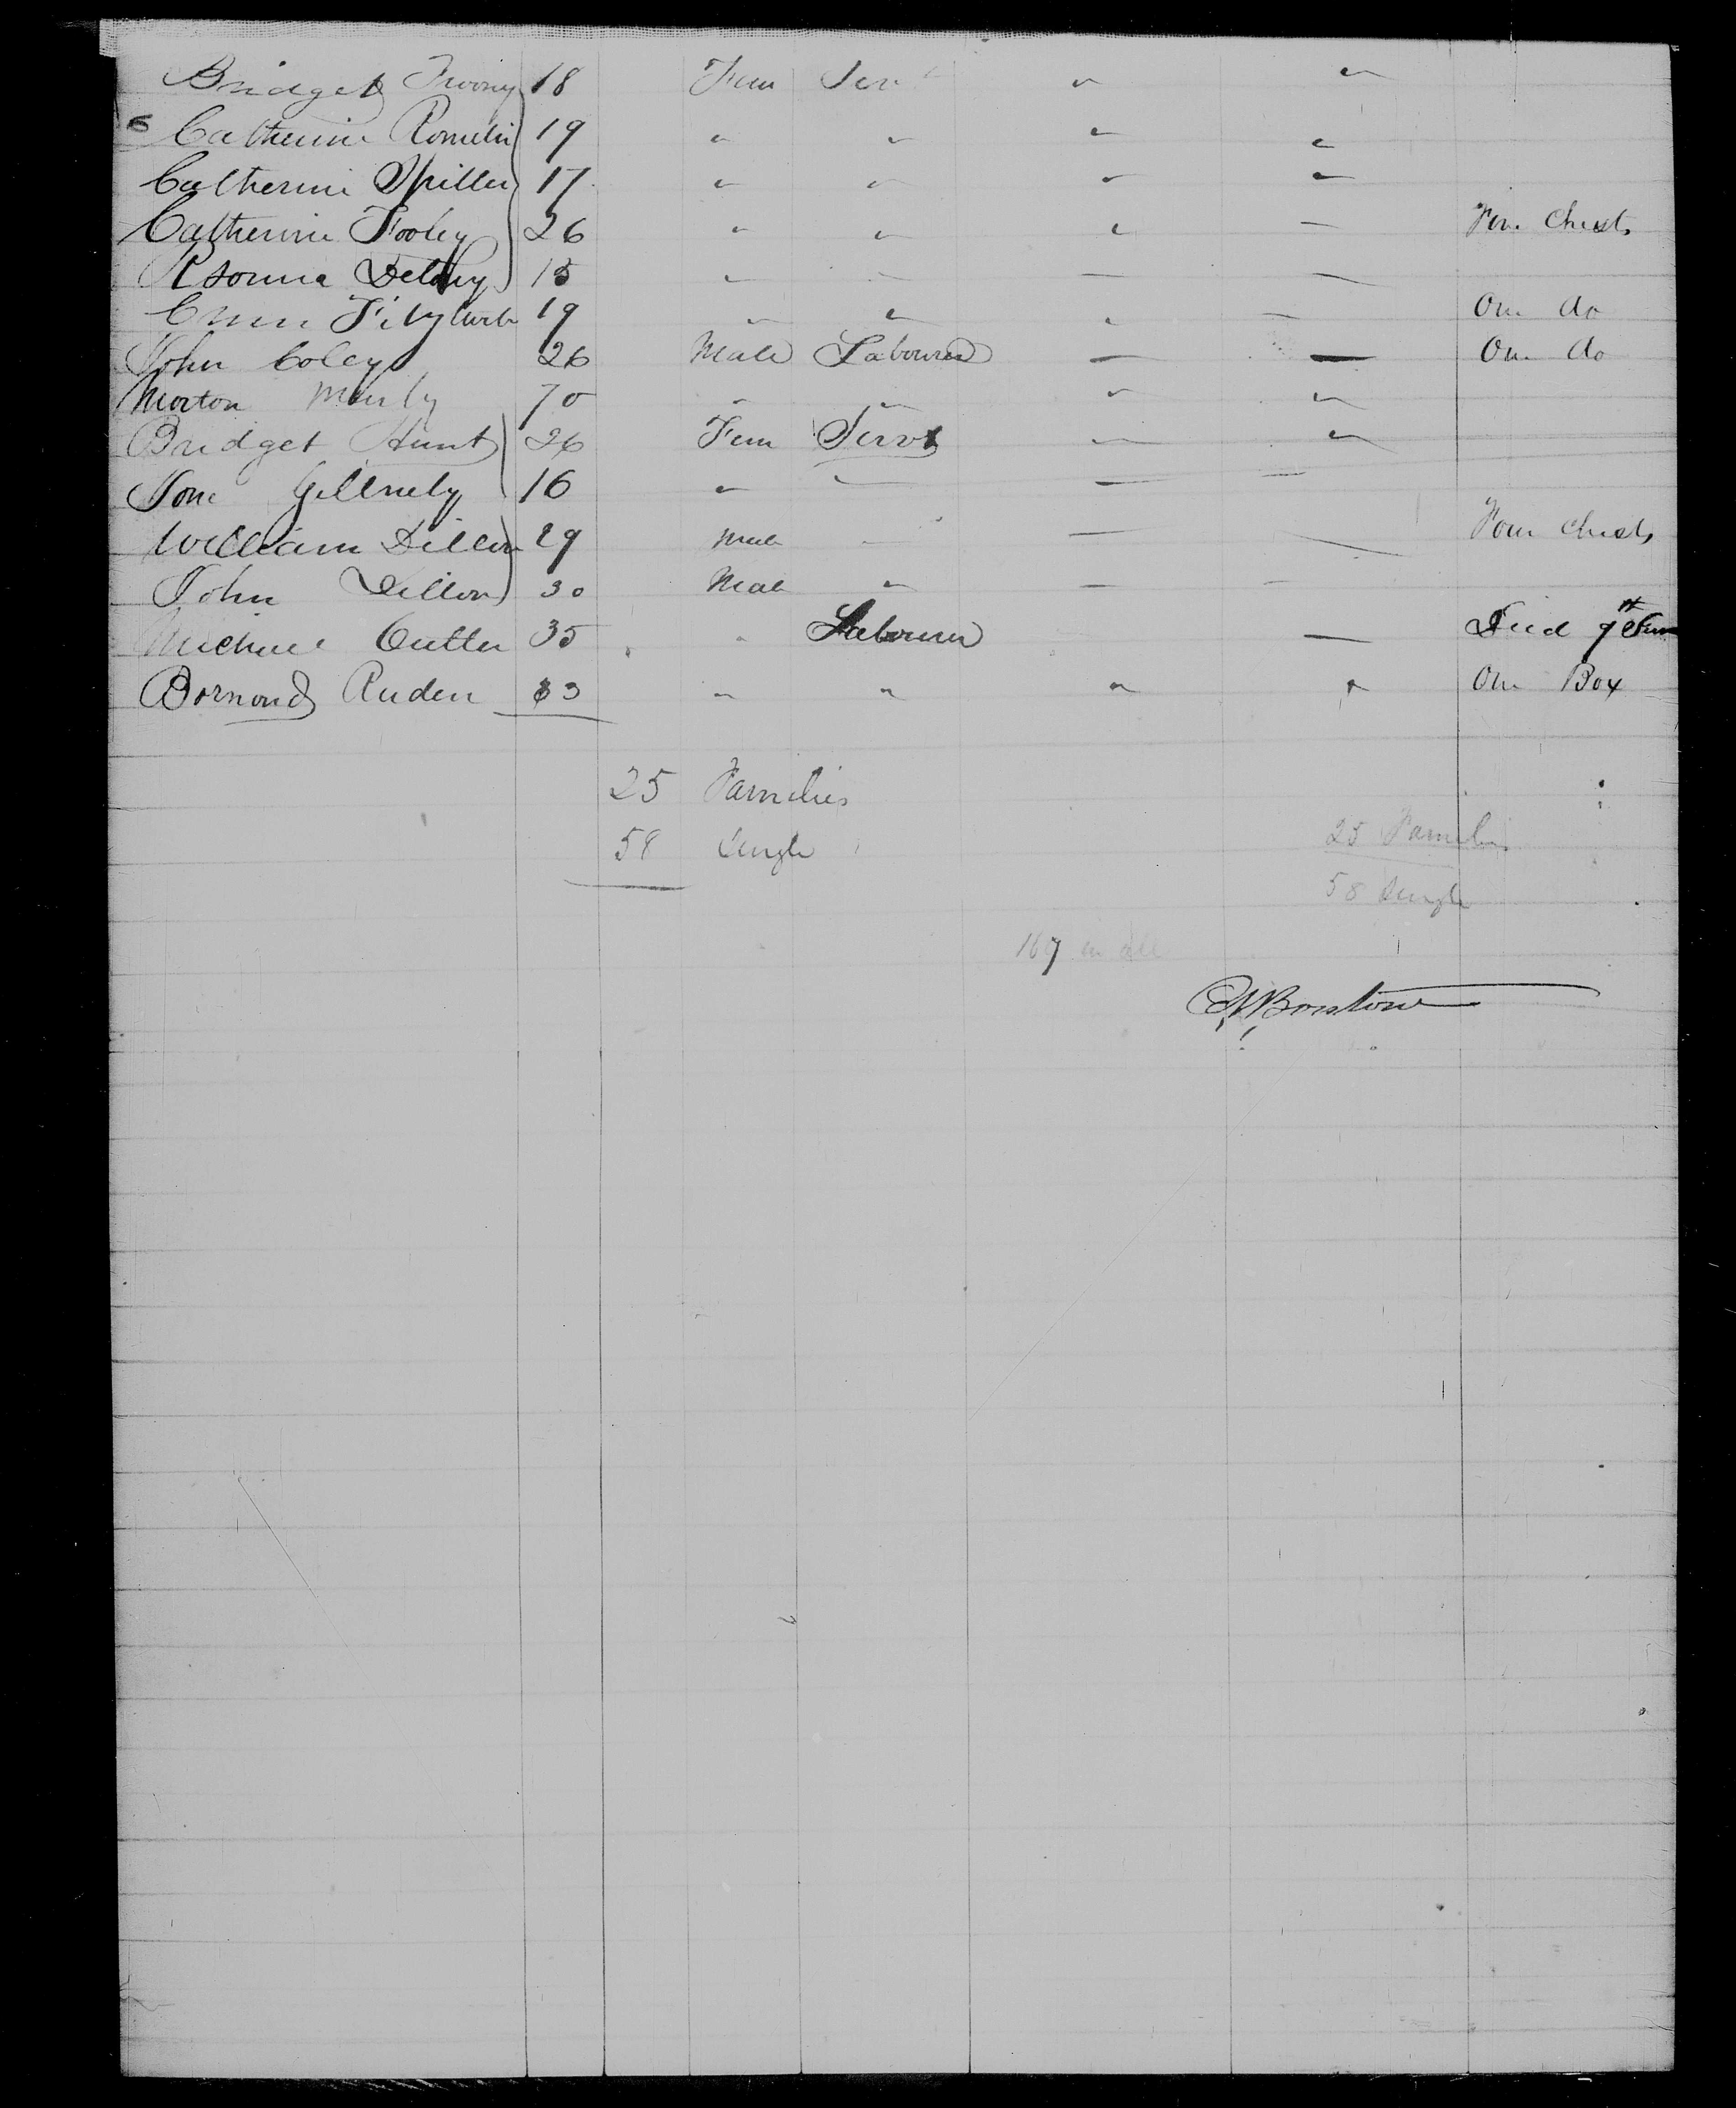 Bridget Twony 18 Fem Serv " "
Catherine Romelin 19 " " " "
Catherine Spiller 17 " " " "
Catherine Fooley 26 " " " — Four Chests
Rosanna Delany 15 " " — —
Fitzgerld 19 " " " — One do
John Coley 26 Male Labourer — — One do
Morton 70 " " " "
Bridget Hunt 26 Fem Servt " "
Jane 16 " — — —
William Dillon 29 Male — — — Four Chests
John Dillon 30 Male " — —
Michael Cutler 35 " Labourer — Died 9th June
Bornond Ruden " " " " One Box
25 Families
58 Single
25 Families
58 Single
167 in all
Borstow